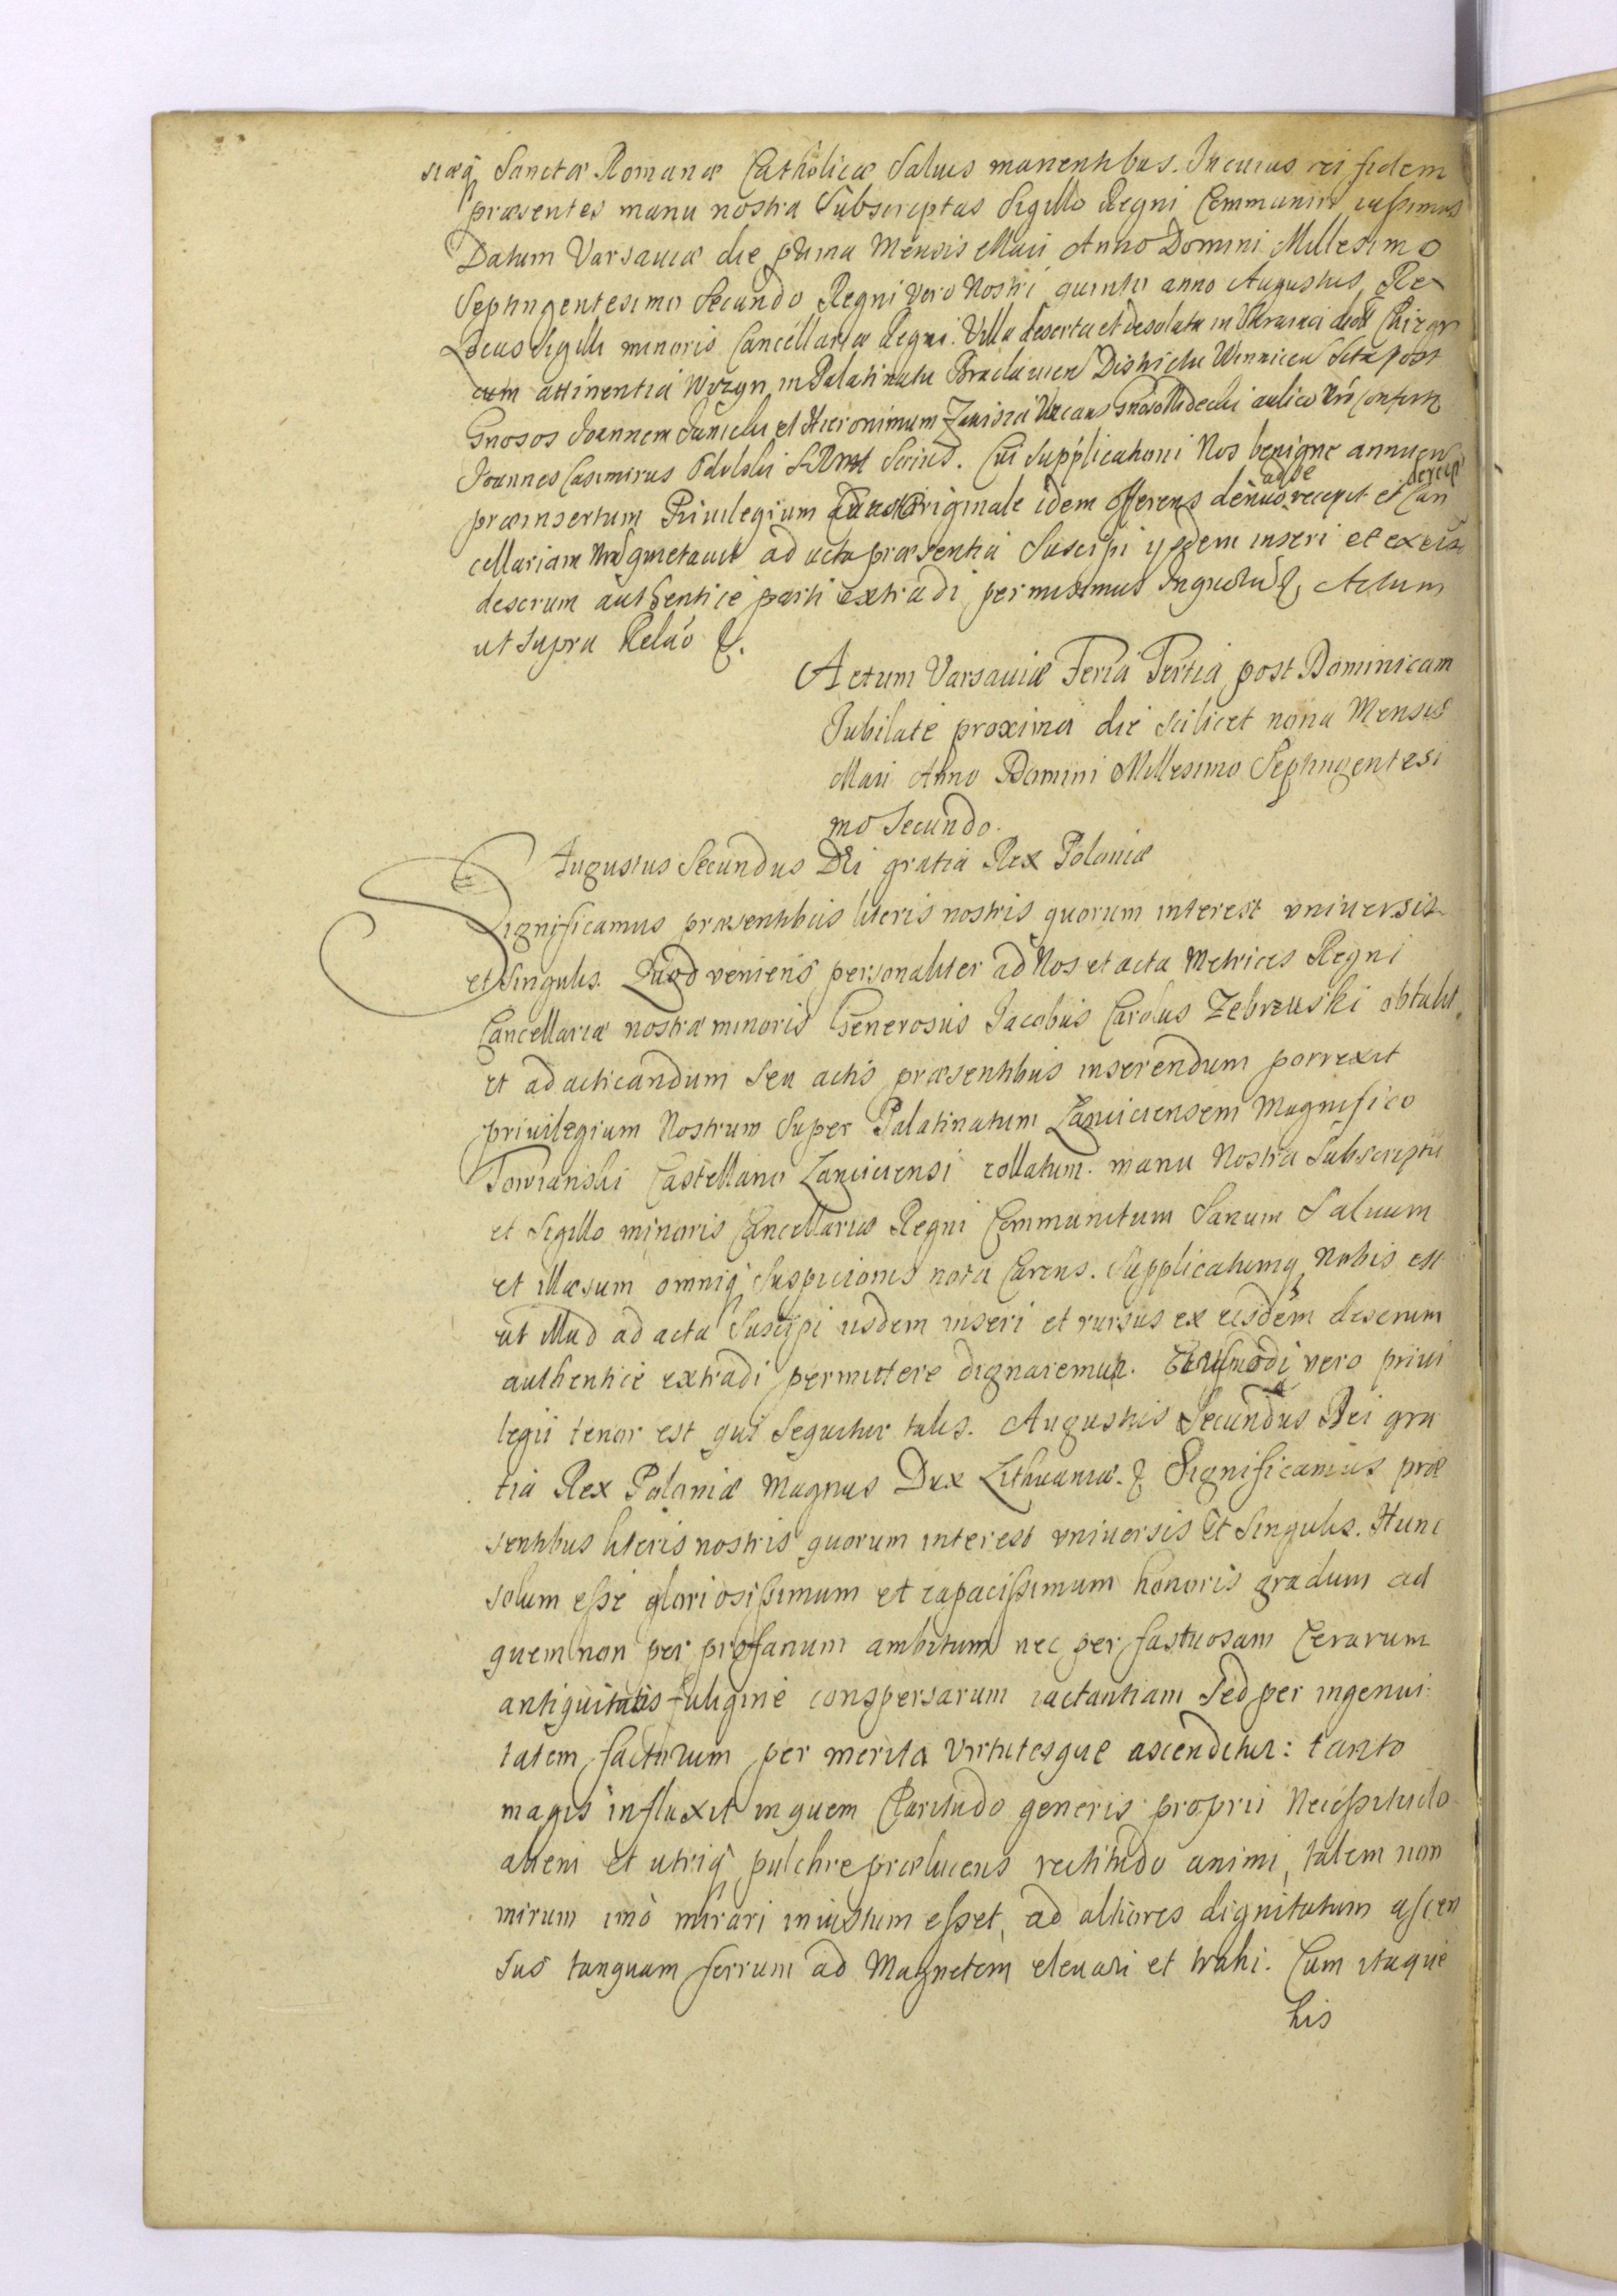 siæq Sanctæ Romanæ Catholicæ Salvis manentibus. In cuius rei fidem
præsentes manu nostra Subscriptas Sigillo Regni Communiri iussimus
Datum Varsaviæ die prima Mensis Maii Anno Domini Millesimo
Septingentesimo Secundo Regni vero Nostri quinto anno Augustus Rex
Locus Sigilli minoris Cancellariæ Regni. Villa deserta et desolata in Ukraina
cum attinentia Wozyn in Palatinatu Braclavien Districtu Winnicen Sita post
Gnosos Joannem Danielem et Hieronimum aulico Nro
Joannes Casimirus Cui Supplicationi Nos benigne annuen
præinsertum Privilegium Originale idem offerens denuo ad se recepit et Can
cellariam quietavit ad acta præsentia Suscipi ysdem inseri et ex eis
descrum authentice parti extradi permisimus Actum
ut Supra Relao
Actum Varsaviæ Feria Tertia post Dominicam
Jubilate proxima die scilicet nona Mensis
Maii Anno Domini Millesimo Septingentesi
mo Secundo.
Augustus Secundus Dei gratia Rex Poloniæ
Significamus præsentibus literis nostris quorum interest universis
et Singulis. Quod veniens personaliter ad Nos et acta Metrices Regni
Cancellariæ nostræ minoris Generosus Jacobus Carolus Zebrzuski obtulit
et ad acticandum seu actis præsentibus inserendum porrexit
privilegium Nostrum Super Palatinatum Lanciciensem Magnifico
Towianski Castellano Lanciciensi collatum. manu Nostra Subscriptu
et Sigillo minoris Cancellariæ Regni Communitum Sanum Salvum
et illæsum omniq Suspicionis nota Carens. Supplicatumq Nobis est
ut illud ad acta Suscipi iisdem inseri et rursus ex eisdem descrum
authentice extradi permittere dignaremur. Eiusmodi vero privi
legii tenor est qui Sequitur talis. Augustus Secundus Dei gra
tia Rex Poloniæ Magnus Dux Lithuaniæ. Significamus præ
sentibus literis nostris quorum interest universis et Singulis. Hunc
solum esse gloriosissimum et capacissimum honoris gradum ad
quem non per profanum ambitum nec per fastuosam Cerarum
antiquitatis fuligine conspersarum iactantiam Sed per ingenui:
tatem factorum per merita virtutesque ascenditur: tanto
magis influxit in quem Claritudo generis proprii Necessitudo
alieni et utriq pulchre prælucens rectitudo animi, talem non
mirum imo mirari iniustum esset, ad altiores dignitatum ascen
sus tanquam ferrum ad Magnetem elevari et trahi. Cum itaque
his